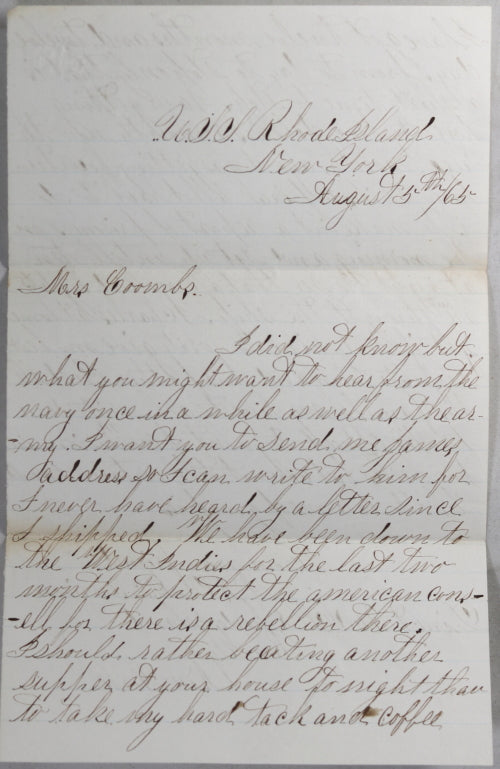 U.S.S. Rhode Island
New York
August 5th/65
Mrs Coombs.
I did not know but
what you might want to hear from the
navy once in a while as well as the ar-
-my. I want you to send me James
address so I can write to him for
I never have heard by a letter since
I shipped. We have been down to
the West Indies for the last two
months to protect the american cons-
-ell for there is a rebellion there.
I should rather be eating another
supper at your house to night than
to take my hard tack and coffee